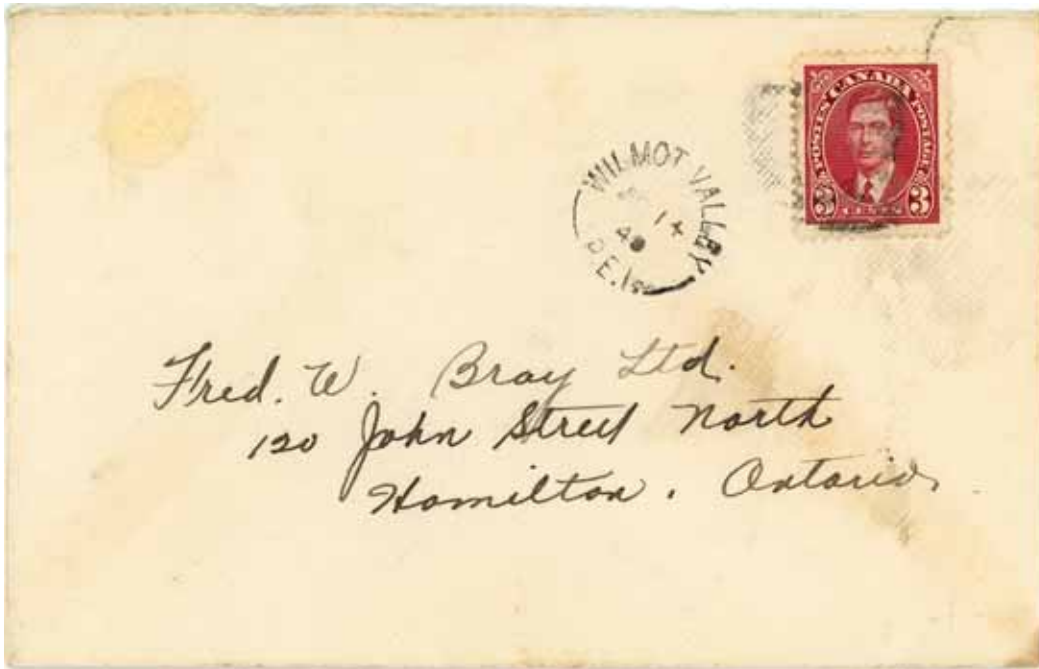 CANADA
POSTES POSTAGE
3 CENTS 3
WILMOT VALLEY
14
P.E.I.
Fred. W. Bray Ltd.
120 John Street North
Hamilton, Ontario,